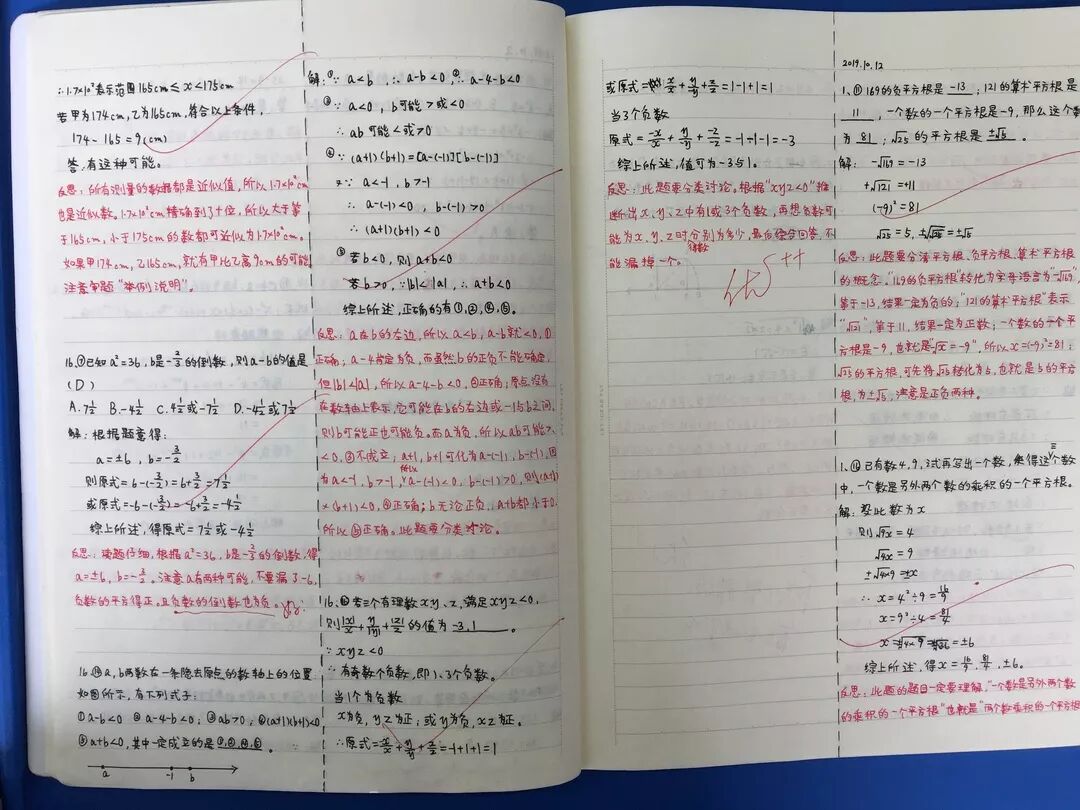 ∴1.7×10²表示范围165cm≤x<175cm
若甲为174cm,乙为165cm,符合以上条件,
174-165=9(cm)
答:有这种可能。
反思:所有测量的数据都是近似值,所以1.7×10²cm
也是近似数。1.7×10²cm精确到了十位,所以大于等
于165cm,小于175cm的数都可近似为1.7×10²cm。
如果甲174cm,乙165cm,就有甲比乙高9cm的可能
注意审题“举例说明”。
16.⑦已知a²=36,b是-2/3的倒数,则a-b的值是
(D)
A.7½ B.-4½ C.4½或-7½ D.-4½或7½
解:根据题意得:
a=±6,b=-3/2
则原式=6-(-3/2)=6+3/2=7½
或原式=-6-(-3/2)=-6+3/2=-4½
综上所述,得原式=7½或-4½
反思:读题仔细,根据a²=36,b是-2/3的倒数,得
a=±6,b=-3/2。注意a有两种可能,不要漏了-6,
负数的平方得正。且负数的倒数也为负。
16.⑱a,b两数在一条隐去原点的数轴上的位置
如图所示,有下列式子:
①a-b<0 ②a-4-b<0;③ab>0;④(a+1)(b+1)<0
⑤a+b<0,其中一定成立的是①,②,④,⑤。
a -1 b
解:①∵a<b,∴a-b<0,②∴a-4-b<0
③∵a<0,b可能>或<0
∴ab可能<或>0
④∵(a+1)(b+1)=[a-(-1)][b-(-1)]
又∵a<-1,b>-1
∴a-(-1)<0,b-(-1)>0
∴(a+1)(b+1)<0
⑤若b<0,则a+b<0
若b>0,∵|b|<|a|,∴a+b<0
综上所述,正确的有①,②,④,⑤。
反思:a在b的左边,所以a<b,a-b就<0,①
正确,a-4肯定为负,而虽然b的正负不能确定,
但|b|<|a|,所以a-4-b<0,②正确;原点没有
在数轴上表示,它可能在b的右边或-1与b之间,
则b可能正也可能负。而a为负,所以ab可能>、
<0,③不成立;a+1,b+1可化为a-(-1),b-(-1),因
为a<-1,b>-1,所以a-(-1)<0,b-(-1)>0,则(a+1)
×(b+1)<0,④正确;b无论正负,a+b都小于0,
所以⑤正确。此题要分类讨论。
16.⑳若三个有理数x,y,z,满足xyz<0,
则|x|/x+y/|y|+|z|/z的值为-3,1。
∵xyz<0
∴有奇数个负数,即1、3个负数。
当1个为负数
x为负,yz为正;或y为负,xz为正。
∴原式=-x/x+y/y+z/z=-1+1+1=1
或原式=x/x+y/y+z/z=1-1+1=1
当3个负数
原式=-x/x+y/-y+-z/z=-1-1-1=-3
综上所述,值可为-3与1。
反思:此题要分类讨论。根据“xyz<0”推
断出x、y、z中有1或3个负数,再想负数可
能为x、y、z时分别得数为多少,最后综合回答,不
能漏掉一个。
优++
2019.10.12
1、⑪169的负平方根是-13,121的算术平方根是
11,一个数的一个平方根是-9,那么这个数
为81;√25的平方根是±√5。
解:-√169=-13
+√121=+11
(-9)²=81
√25=5,±√√25=±√5
反思:此题要分清平方根、负平方根、算术平方根
的概念。“169的负平方根”转化为字母语言为“-√169”,
等于-13,结果一定为负的;“121的算术平方根”表示
“√121”,等于11,结果一定为正数;一个数的一个平
方根是-9,也就是“√x=-9”,所以x=(-9)²=81;
√25的平方根,可先将√25转化为5,也就是5的平方
根,为±√5,注意是正负两种。
1、⑭已有数4,9,试再写出一个数,使得这三个数
中,一个数是另外两个数的乘积的一个平方根。
解:设此数为x
则√9x=4
√4x=9
±√4×9=x
∴x=4²÷9=16/9
x=9²÷4=81/4
x=±√4×9=±√36=±6
综上所述,得x=16/9,81/4,±6。
反思:此题的题目一定要理解,“一个数是另外两个数
的乘积的一个平方根”也就是“两个数乘积的一个平方根